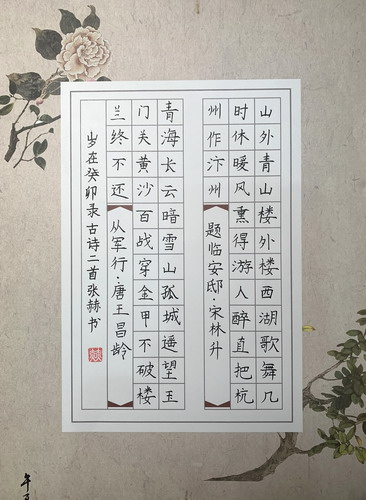 山外青山楼外楼西湖歌舞几
时休暖风熏得游人醉直把杭
州作汴州
题临安邸·宋林升
青海长云暗雪山孤城遥望玉
门关黄沙百战穿金甲不破楼
兰终不还
从军行·唐王昌龄
岁在癸卯录古诗二首张赫书